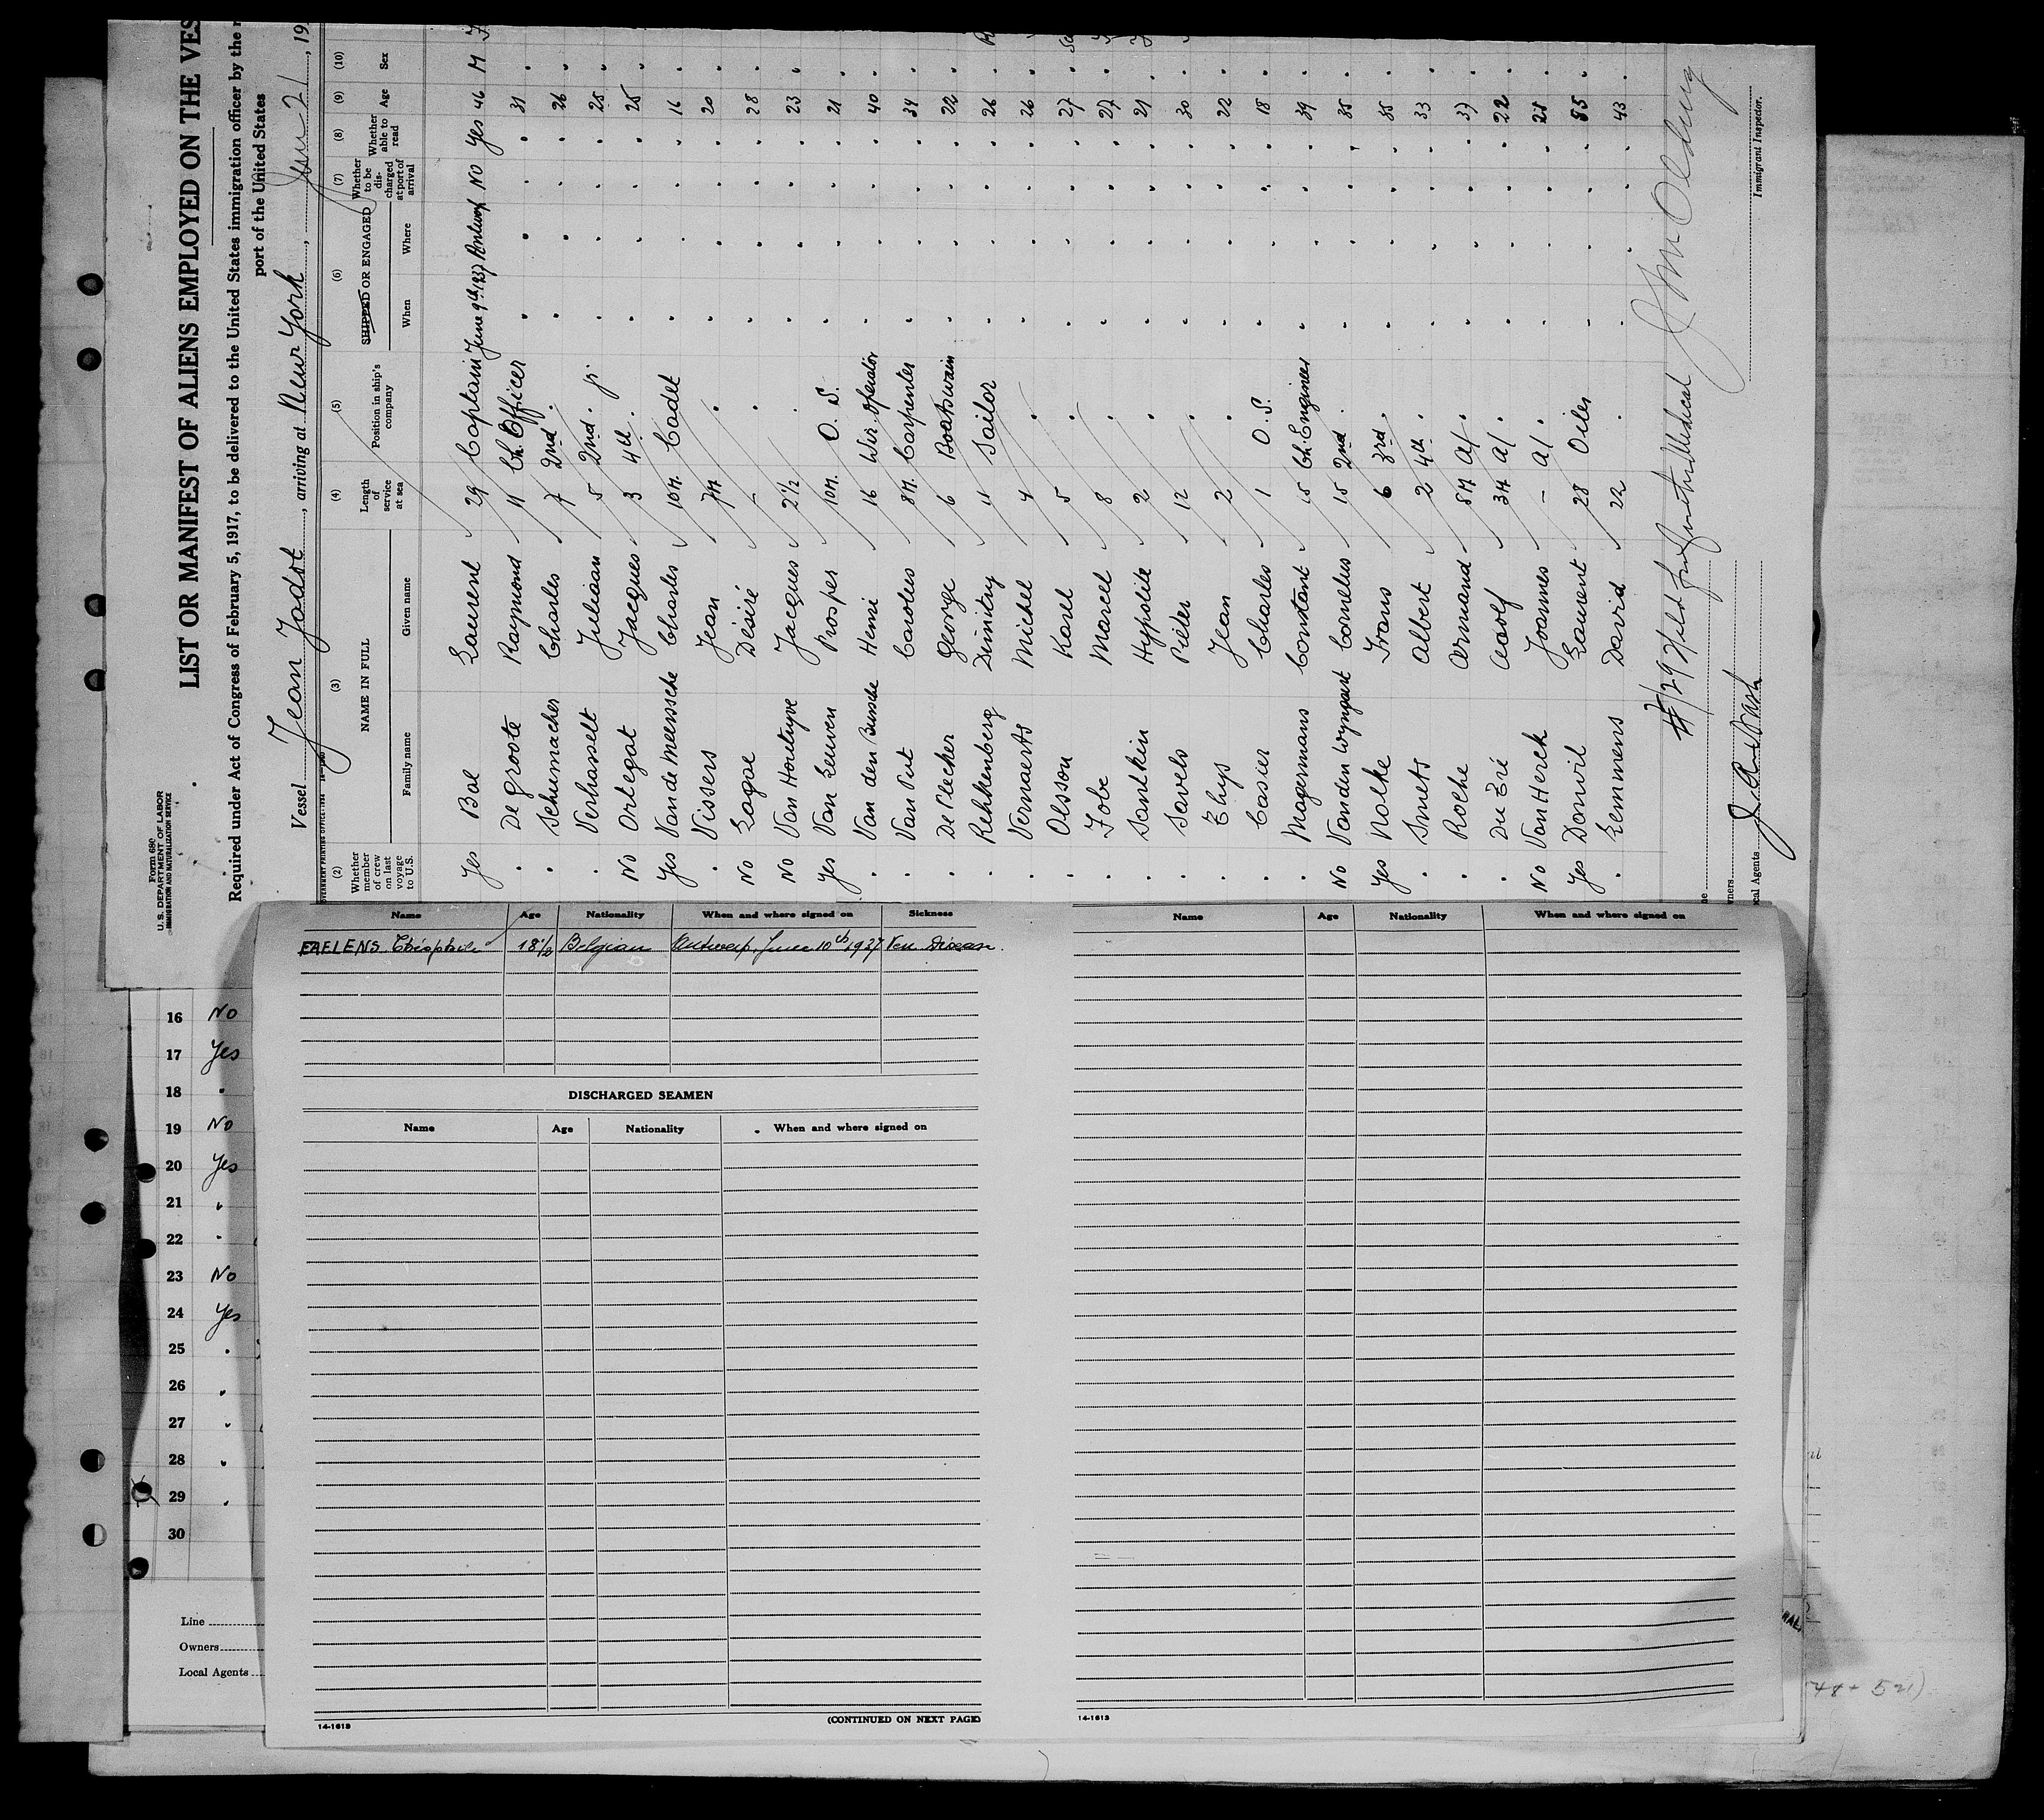 Form 680
U.S. DEPARTMENT OF LABOR
IMMIGRATION AND NATURALIZATION SERVICE
LIST OR MANIFEST OF ALIENS EMPLOYED ON THE VES
Required under Act of Congress of February 5, 1917, to be delivered to the United States immigration officer by the
port of the United States
Vessel Jean Jadot, arriving at New York, 19
(2) (3) (4) (5) (6) (7) (8) (9) (10)
Whether member of crew on last voyage to U.S. NAME IN FULL Family name Given name Length of service at sea Position in ship's company SHIPPED OR ENGAGED When Where Whether to be discharged at port of arrival Whether able to read Age Sex
Yes Bal Laurent 29 Captain June 9th 1937 Antwerp No Yes 46 M
" De Groote Raymond 11 Ch. Officer " " " " 31 "
" Schumacher Charles 7 2nd " " " " " 26 "
" Verhasselt Juliaan 5 2nd " jr " " " " 25 "
No Ortegat Jacques 3 4th " " " " " 25 "
Yes Van de Meerssche Charles 10 M. Cadet " " " " 16 "
" Vissers Jean 7M " " " " " 20 "
No Désiré - " " " " " 28 "
No Van Houtryve Jacques 2½ " " " " " 23 "
Yes Van Leuven Prosper 10M. O. S. " " " " 21 "
" Van den Bussche Henri 16 Wir. operator " " " " 40 "
" Van Put Carolus 8M. Carpenter " " " " 34 "
" De Plecker George 6 Boatswain " " " " 22 "
" Rehkenberg Dimitry 11 Sailor " " " " 26 "
" Vernaerts Michel 4 " " " " " 26 "
" Olsson Karel 5 " " " " " 27 "
" Fobe Marcel 8 " " " " " 27 "
" Santkin Hyppolite 2 " " " " " 21 "
" Savels Pieter 12 " " " " " 30 "
" Thys Jean 2 " " " " " 22 "
" Casier Charles 1 O. S. " " " " 18 "
" Magermans Constant 15 Ch. Engineer " " " " 39 "
No Van den Wyngaert Cornelius 15 2nd " " " " " 35 "
Yes Nolke Frans 6 3rd " " " " " 35 "
" Smets Albert 2 4th " " " " " 33 "
" Roche Armand 8M A/ " " " " " 37 "
" Du Pré Adolf 3M A/ " " " " " 22 "
No Van Herck Joannes - A/ " " " " " 25 "
Yes Donvil Laurent 28 Oiler " " " " 55 "
" Lemmens David 22 " " " " " 43 "
Immigrant Inspector.
Name Age Nationality When and where signed on Sickness
FAELENS Théophile 18½ Belgian Antwerp, June 10th 1937 Ven Disease.
DISCHARGED SEAMEN
Name Age Nationality When and where signed on
14-1613 (CONTINUED ON NEXT PAGE)
Name Age Nationality When and where signed on
14-1613
16 No
17 Yes
18 "
19 No
20 Yes
21 "
22 "
23 No
24 Yes
25 "
26 "
27 "
28 "
29 "
30
Line
Owners
Local Agents